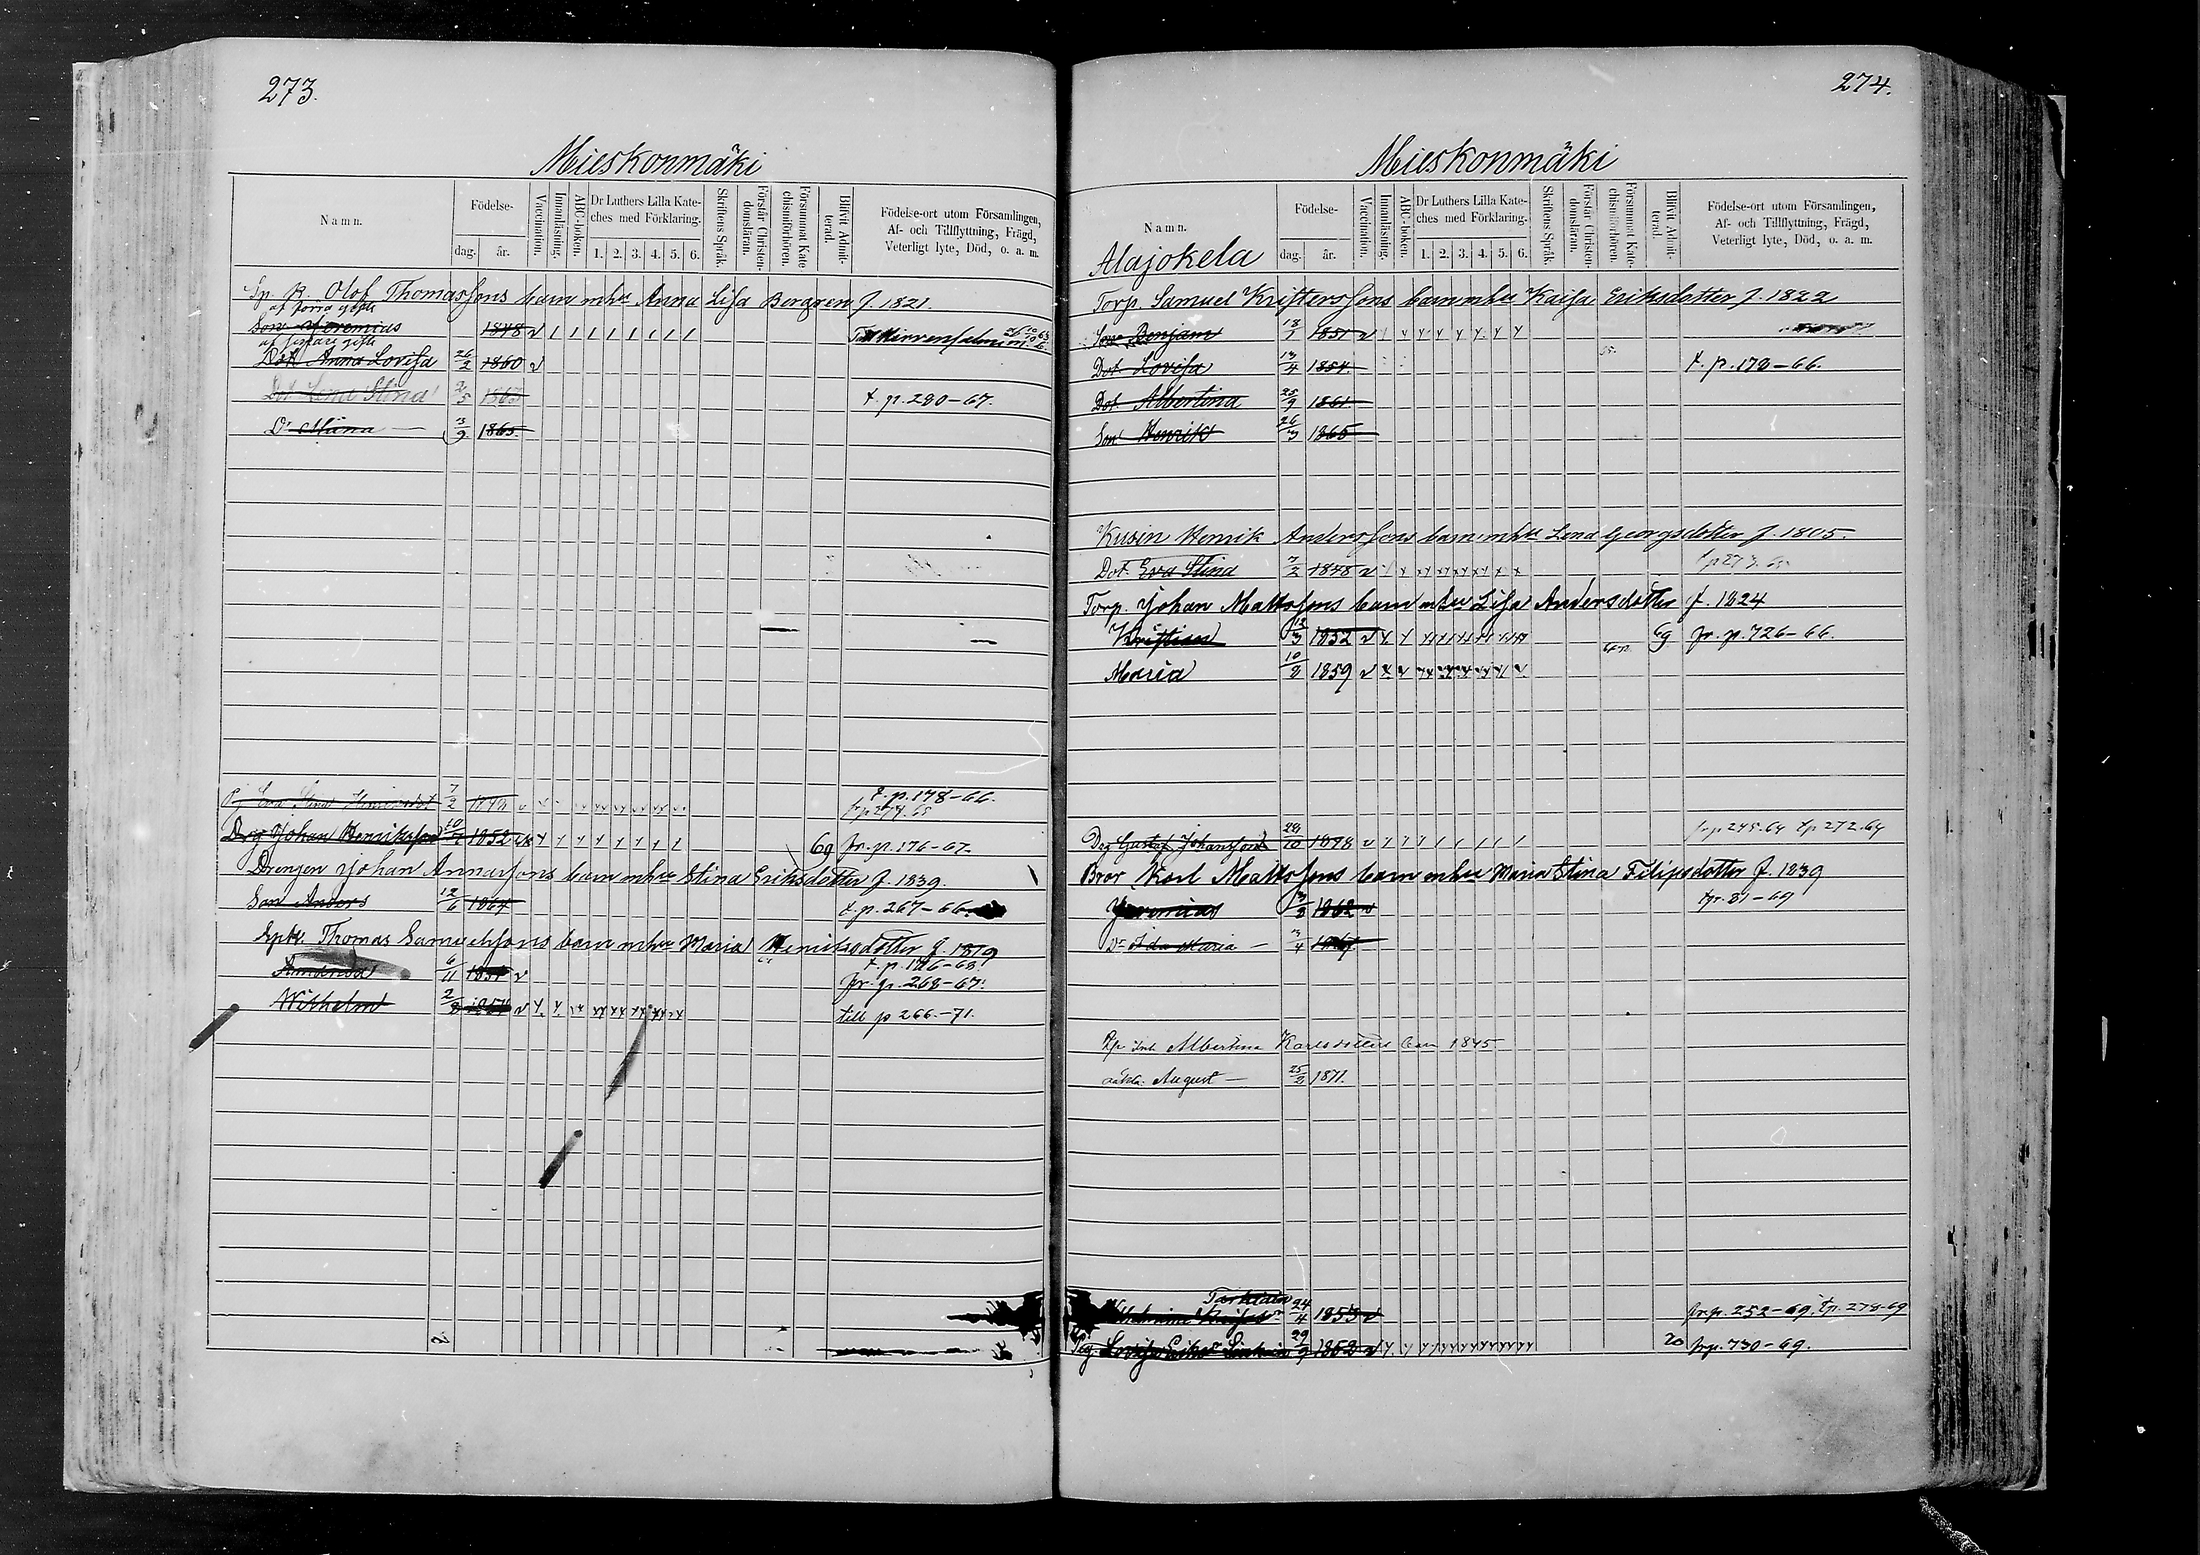 273.
Mieskonmäki
Namn.
Födelse-
dag.
år.
Vaccination.
Innanläsning.
ABC-boken.
Dr Luthers Lilla Kate-
ches med Förklaring.
1. 2. 3. 4. 5. 6.
Skriftens Språk.
Förstår Christen-
domsläran.
Försummat Kate
chismiförhören.
Blifvit Admit-
terad.
Födelse-ort utom Församlingen,
Af- och Tillflyttning, Frägd,
Veterligt lyte, Död, o. a. m.
Sp. R. Olof Thomassons barn m hu Anna Lisa Borggren f. 1821.
af förra gifte
Son Jeremias 1848 v
af senare gifte
Dot. Anna Lovisa 26/2 1860 v
Dot. Lena Stina 2/5 1863 t. p. 280-67.
Dr Mina 3/9 1865
Eva Stina 7/2 1848 t. p. 178-66.
fr p 274. 65
Drg Johan Henriksson 1852 69 fr. p. 176-67.
Drengen Johan Annassons barn m hu Stina Eriksdotter f. 1839.
Son Anders 12/6 1864 t. p. 267-66.
Thomas Samuelssons barn m hu Maria Henriksdotter f. 1819
Amanda 6/11 1851 v t. p. 176-68.
fr. p. 268-67.
Wilhelm 2/8 v till p 266.-71.
274.
Mieskonmäki
Namn.
Alajokela
Födelse-
dag.
år.
Vaccination.
Innanläsning.
ABC-boken.
Dr Luthers Lilla Kate-
ches med Förklaring.
1. 2. 3. 4. 5. 6.
Skriftens Språk.
Förstår Christen-
domsläran.
Försummat Kate-
chismiförhören.
Blifvit Admit-
terad.
Födelse-ort utom Församlingen,
Af- och Tillflyttning, Frägd,
Veterligt lyte, Död, o. a. m.
Torp. Samuel Kristerssons barn m hu Kaisa Eriksdotter f. 1822
Son Benjam 18/1 1851 v
Dot. Lovisa 13/4 1854 t. p. 178-66.
Dot. Albertina 25/9 1861
Son Henrik 26/3 1865
Kusin Henrik Anderssons barn m hu Lena Georgsdotter f. 1805.
Dot. Eva Stina 7/2 1848 v t p 273. 65
Torp. Johan Mattssons barn m hu Lisa Andersdotter f. 1824
Kristian 12/3 1852 v 69 fr. p. 726-66.
Maria 10/8 1859 v
Drg Gustaf Johansson 1848 v fr p 245.64 tp 272.64
Bror Karl Mattssons barn m hu Maria Stina Filipsdotter f. 1839
Jeremias 3/8 1862 v fr. 81-69
Dr Ida Maria 3/4
Albertina Karlsdotters barn 1845
oäkta August 25/2 1871.
24/4 1853 v fr p. 252-69. t p. 278-69
Pig. Lovisa 29/9 1852 v 70 fr p. 730-69.